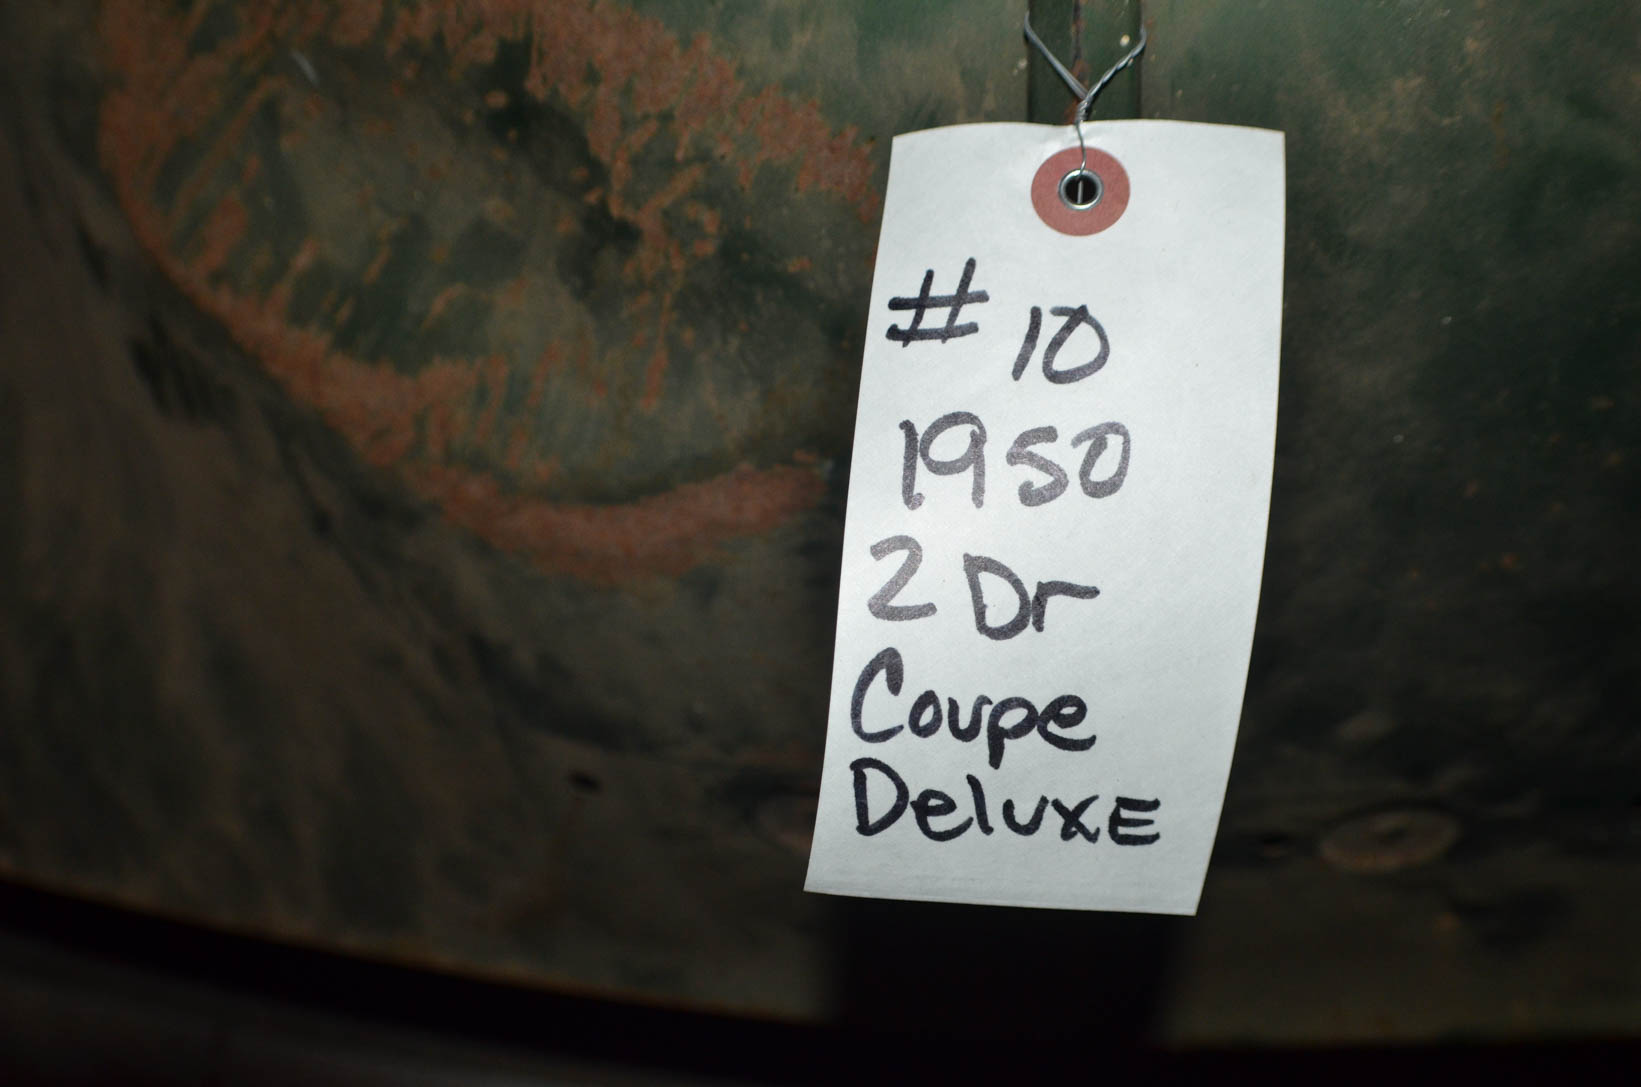 # 10
1950
2 Dr
Coupe
Deluxe